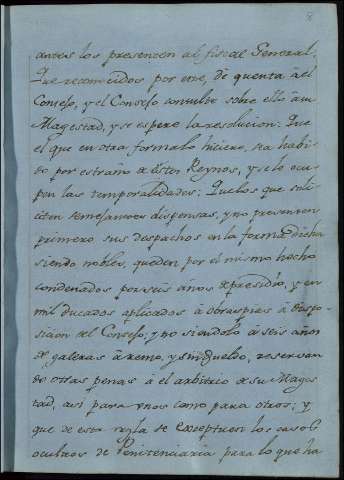 8
antes los presenten al fiscal General.
Que reconocidos por este, dé quenta àel
Consejo, y el Consejo consulte sobre ello âsu
Magestad, y se espere la resolucion: Que
el que en otra forma lo hiciere, sea habi-
do por estraño de estos Reynos, y se le ocu-
pen las temporalidades: Que los que soli-
citen semejantes dispensas, y no presenten
primero sus despachos en la forma dicha
siendo nobles, queden por el mismo hecho
condenados por seis años de presidio, y en
mil ducados aplicados â obras pias â dispo-
sicion del Consejo; y no siendolo â seis años
de galeras âremo, y sin sueldo, reservan-
do otras penas â el arbitrio de su Mages-
tad, asi para unos como para otros; y
que de esta regla se exceptuen los casos
ocultos de Penitenciaria para lo que ha